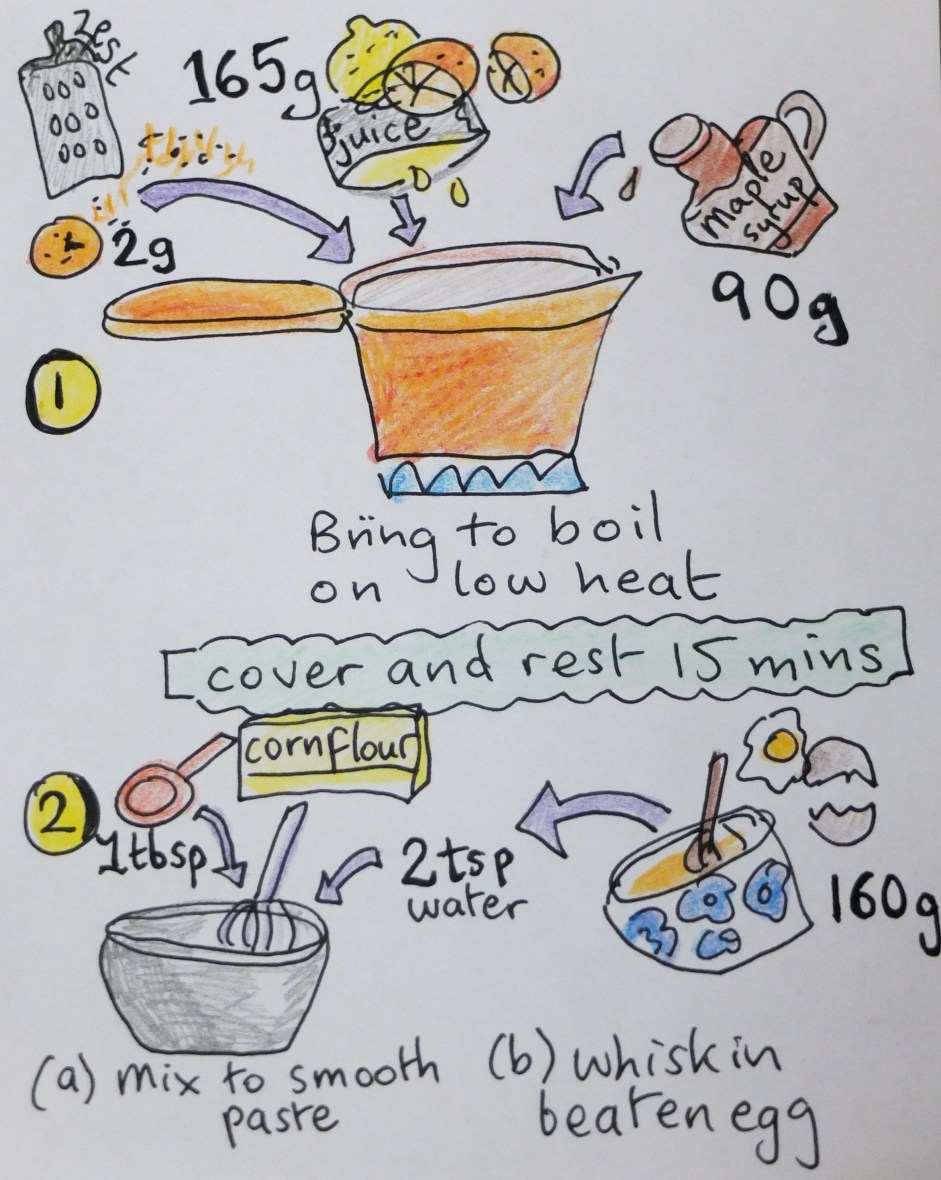 Zest
165g
juice
maple
syrup
2g
90g
1
Bring to boil
on low heat
cover and rest 15 mins
cornflour
2
1tbsp
2tsp
water
160g
(a) mix to smooth
paste
(b) whisk in
beaten egg